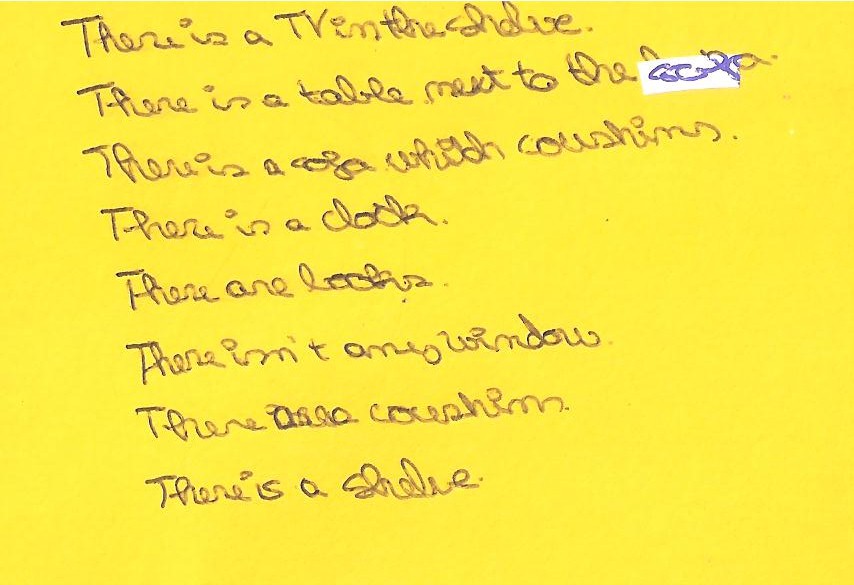 There is a TV in the shelve.
There is a table next to the sofa.
There is a sofa whith coushins.
There is a clock.
There are books.
There isn't any window.
There is a coushin.
There is a shelve.